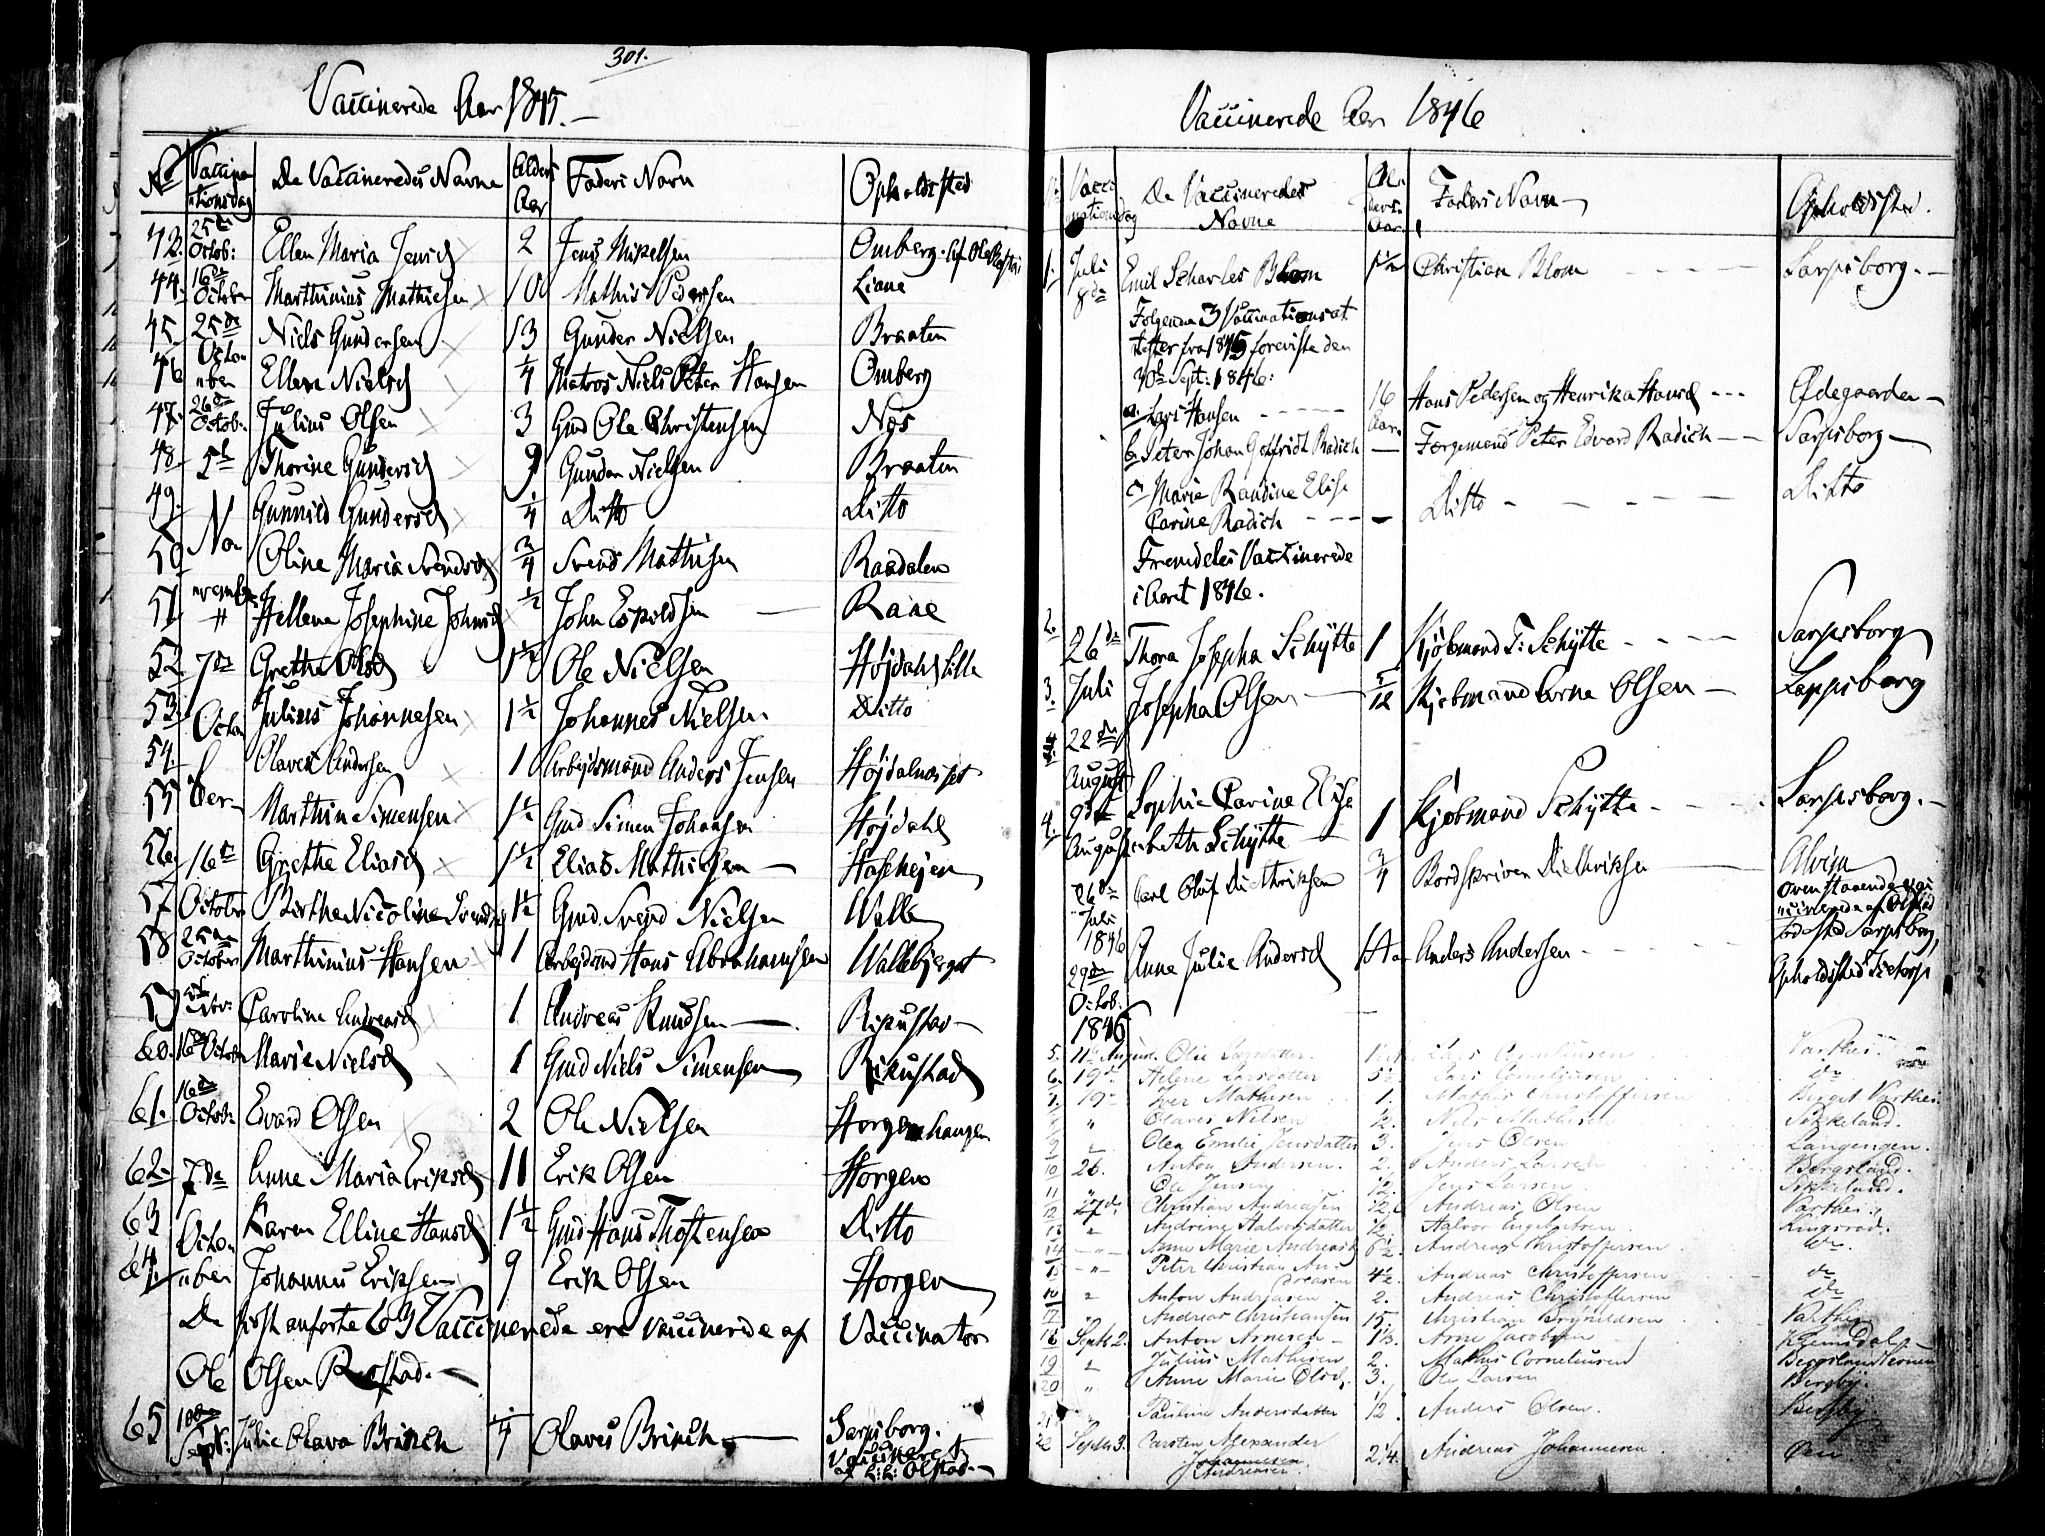 301.
Vaccinerede Aar 1845.
No Vaccinationsdag De Vaccineredes Navne Alder Aar Faders Navn Opholdsted
42. 25de Octob: Ellen Maria Jensd 2 Jens Mikelsen Omberg. af Ole
44. 16de October Marthinius Mathiesen 10 Mathis Pedersen Liane
45. 25de Niels Gundersen 13 Gunder Nielsen Braaten
46 Octo
ber Ellen Nielsd 1/4 Matros Niels Peter Hansen Omberg
47. 26de Octob. Julius Olsen 3 Gmd Ole Christensen Næs
48. 5te Thorine Gundersd 9 Gunder Nielsen Braaten
49. No Gunnild Gundersd 1/4 Ditto Ditto
50 Oline Maria Svendsd 3/4 Svend Mathisen Raadalen
51 vember Hellene Josephine Johnsd 1/2 John Espildsen Rane
52 7de Grethe Olsd 1 1/2 Ole Nielsen Højdahl lille
53. Octo Julius Johannesen 1 1/2 Johannes Nielsen Ditto
54. Olaves Andersen 1 Arbejdsmand Anders Jensen
55 ber Marthin Simensen 1 1/2 Gmd Simen Johansen Højdahl
56. 16de Grethe Eliasd 1 1/2 Elias Mathiesen
57 October Birthe Nicoline Svendsd 1 1/2 Gmd. Svend Nielsen Walle
58 25de October Marthinius Hansen 1 Arbejdsmd Hans Abrahamsen Wallebjerget
59 Caroline Andreasd 1 Andreas Knudsen
60. 16de Octobr Marie Nielsd 1 Gmd Niels Simensen
61. 16de Octob: Evard Olsen 2 Ole Nielsen Horgenhaugen
62. 7de Anne Maria Eriksd 11 Erik Olsen Horgen
63 Octo Karen Elline Hansd 1 1/2 Gmd Hans Thostensen Ditto
64 ber Johannes Eriksen 9 Erik Olsen Horgen
De først anførte 63 Vaccinerede ere vaccinerede af Vaccinator
Ole Olsen
65 10de Sept: Julie Olava Brinch 1/4 Olaves Brinch Sarpsborg.
Vaccineret af Olstad.
Vaccinerede Aar 1846
Vaccinationsdag De Vaccineredes Navne Alders Aar Faders Navn Opholdsted.
1. Juli 8de Emil Scharles Blom 1 1/2 Christian Blom Sarpsborg.
Følgende 3 Vaccinationsat
tester fra 1845 foreviste den
30te Sept: 1846:
a. Lars Hansen 16 Aar. Hans Pedersen og Henrika Hansd Ødegaarden
b. Peter Johan Gotfridt Radich Færgemand Peter Edvard Radich Sarpsborg
c. Marie Randine Elise
Carine Radich Ditto Ditto
Fremdeles Vaccinerede
i Aaret 1846.
2. 26de Thora Josepha Schytte 1 Kjøbmand F: Schytte Sarpsborg
3. Juli Josepha Olsen 5/12 Kjøbmand Arne Olsen Sarpsborg
22de August
4. 9de August Sophie Carine Elise
beth Schytte 1 Kjøbmand Schytte Sarpsborg.
26de Juli 1846 Carl Oluf Diethriksen 3/4 Bordskriver Diethriksen Alvim
ovenstaaende vac
cinerede af Olstad
29de Octob: 1846 Anne Julie Andersd 1 Aar Anders Andersen fødested Sarpsborg,
5. 11. August. Ole Larsdatter. Lars Corneliusen Varthei.
6. 19de Helene Larsdatter 5 1/2. Lars Corneliusen do
7. 19 Iver Mathisen 1. Mathis Christoffersen Berget Varthei.
8 " Olaves Nilsen 1/2. Nils Mathisen Sikkeland.
9 " Olea Emilie Jensdatter 3. Jens Olsen Langengen.
10 26. Anton Andersen. 2. Anders Larsen Bergsland.
11 " Ole Jensen 1/2. Jens Larsen Sikkeland.
12 27de. Christian Andreasen 1/2. Andreas Olsen Varthei.
13 " Andrine Halvorsdatter 1/2. Halvor Engebretsen Kingsrød.
14 " Anne Marie Andreasd 6 1/2. Andreas Christoffersen do
15 " Peter Christian An-
dreasen 4 1/2. Andreas Christoffersen do
16 " Anton Andreasen 2. Andreas Christoffersen do
17. Andreas Christiansen 15. Christian Brynildsen Varthei
18 Septb. 2. Anton Arnesen 13. Arne Jacobsen
19 " Julius Mathisen 2. Mathis Corneliusen
20 " Anne Marie Olsd. 3. Ole Larsen Bergby.
21 " Pauline Andersdatter 1/2 Anders Olsen. Bergby
22 Septb 3. Carsten Alexander
Johannesen
Andreasen. 2 1/4. Andreas Johannesen